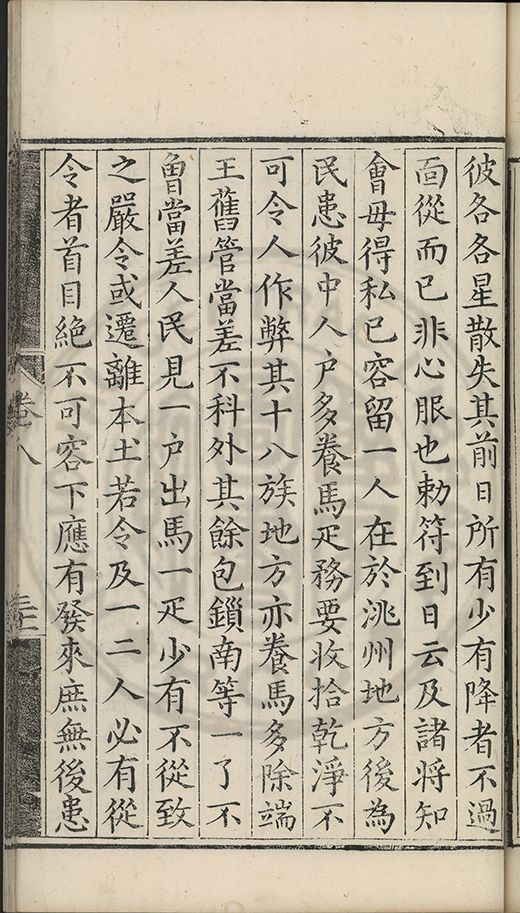 彼各各星散失其前日所有少有降者不過
靣從而已非心服也勅符到日云及諸將知
會毋得私已容留一人在於洮州地方後為
民患彼中人户多養馬疋務要收拾乾淨不
可令人作弊其十八族地方亦養馬多除端
王舊管當差不科外其餘包鎖南等一了不
曾當差人民見一户出馬一疋少有不從致
之嚴令或遷離本土若令及一二人必有從
令者首目絶不可容下應有發來庶無後患
卷八